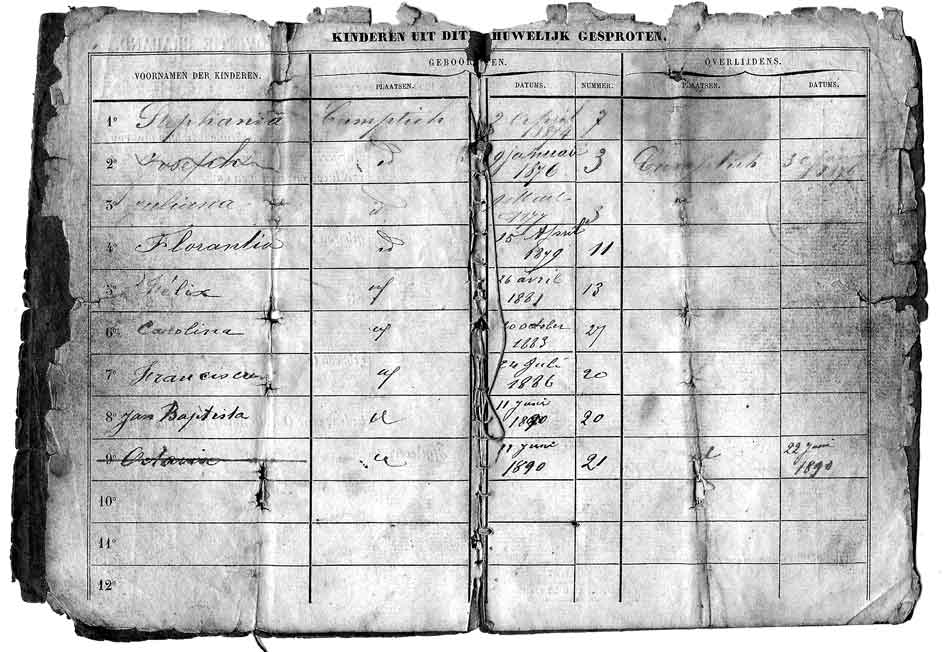 KINDEREN UIT DIT HUWELIJK GESPROTEN.
VOORNAMEN DER KINDEREN.
GEBOORTEN.
OVERLIJDENS.
PLAATSEN.
DATUMS.
NUMMER.
PLAATSEN.
DATUMS.
1° Stephania Cumptich 2 April 1874 7
2° Joseph id 9 januari 1876 3 Cumptich
3° juliana id 1877 3
4° Florantia id 15 April 1879 11
5° Félix id 26 avril 1881 13
6° Carolina id 10 october 1883 27
7° Francisca id 24 Juli 1886 20
8° Jan Baptista id 11 juni 1890 20
9° Octavia id 11 juni 1890 21 id 22 juni 1890
10°
11°
12°